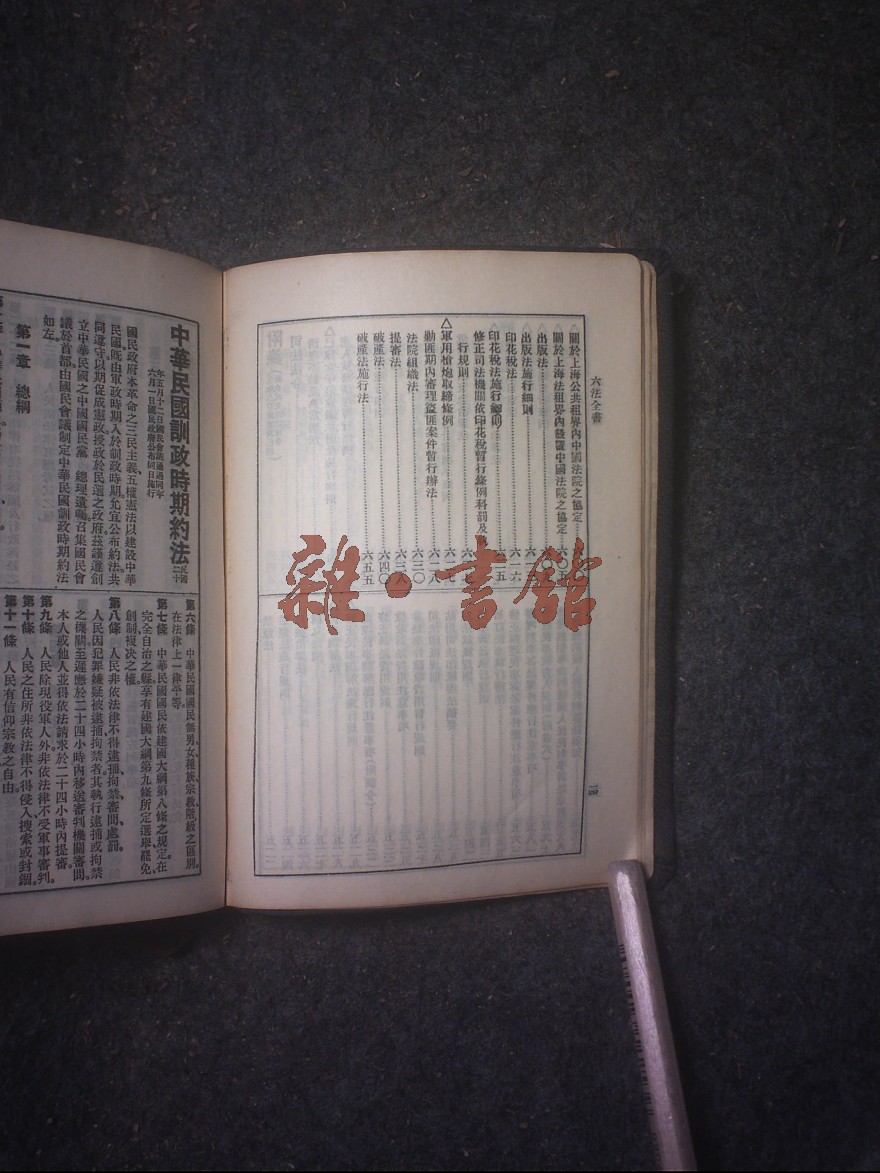 六法全書
△關於上海公共租界內中國法院之協定
△關於上海法租界內設置中國法院之協定
出版法
出版法施行細則 六一二
印花稅法 六一六
印花稅法施行細則
修正司法機關依印花稅暫行條例科罰及執
行規則
△軍用槍炮取締條例
勦匪期內審理盜匪案件暫行辦法 六二八
法院組織法 六三〇
提審法 六三八
破產法 六四〇
破產法施行法 六五五
一四
雜·書館
中華民國訓政時期約法
民國二十
年五月十二日國民會議通過同年
六月一日國民政府公布同日施行
國民政府本革命之三民主義、五權憲法以建設中華
民國。旣由軍政時期入於訓政時期允宜公布約法共
同遵守以期促成憲政授政於民選之政府茲謹遵創
立中華民國之中國國民黨 總理遺囑召集國民會
議於首都由國民會議制定中華民國訓政時期約法
如左
第一章 總綱
第六條 中華民國國民無男女、種族、宗教、階級之區別。
在法律上一律平等。
第七條 中華民國國民依建國大綱第八條之規定在
完全自治之縣享有建國大綱第九條所定選舉、罷免、
創制複决之權。
第八條 人民非依法律不得逮捕、拘禁、審問、處罰。
人民因犯罪嫌疑被逮捕拘禁者其執行逮捕或拘禁
之機關至遲應於二十四小時內移送審判機關審問。
本人或他人並得依法請求於二十四小時內提審。
第九條 人民除現役軍人外非依法律不受軍事審判。
第十條 人民之住所非依法律不得侵入、搜索或封錮。
第十一條 人民有信仰宗教之自由